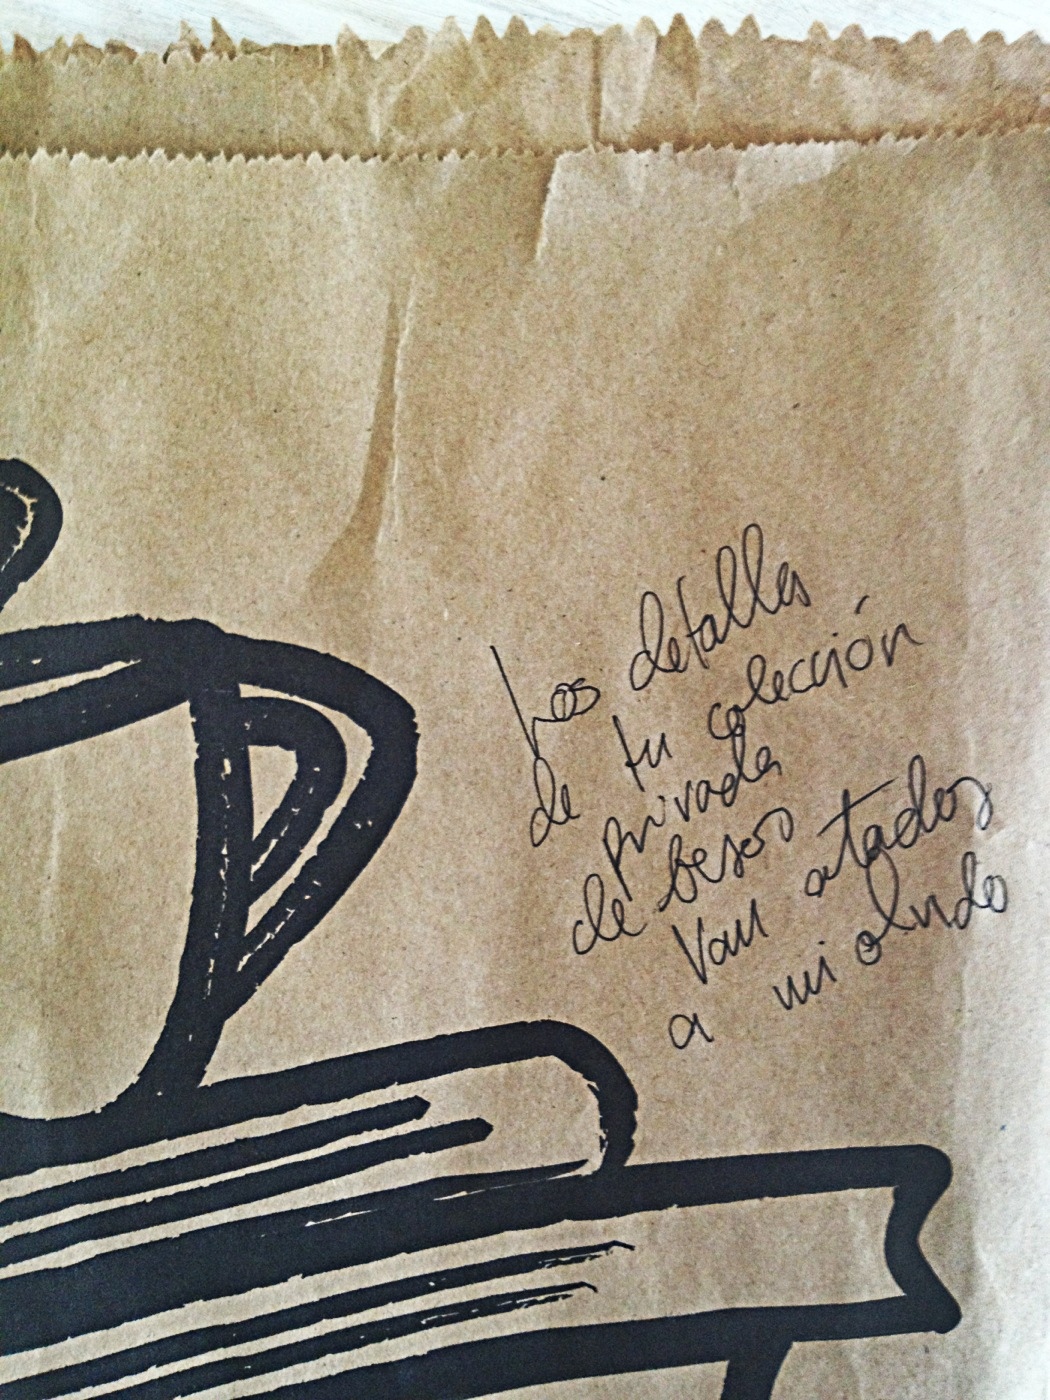 Los detalles
de tu colección
privada
de besos
van atados
a mi olvido